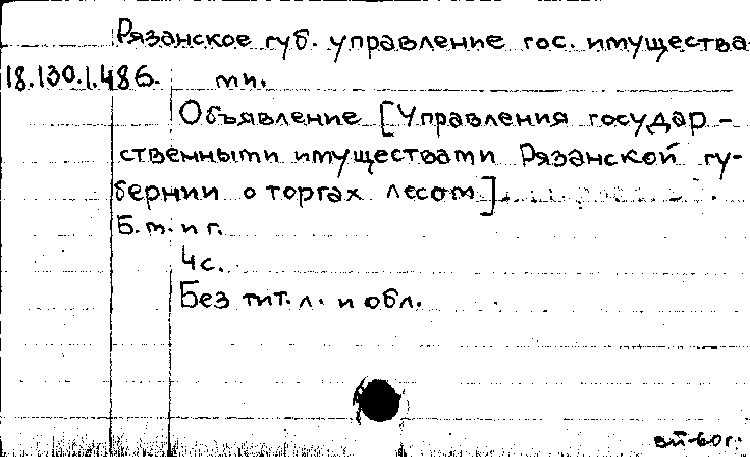 Рязанское губ. управление гос. имущества
18.130.1.486. ми.
Объявление [Управления государ-
ственными имуществами Рязанской гу-
бернии о торгах лесом]
Б. м. и г.
4 с.
Без тит. л. и обл.